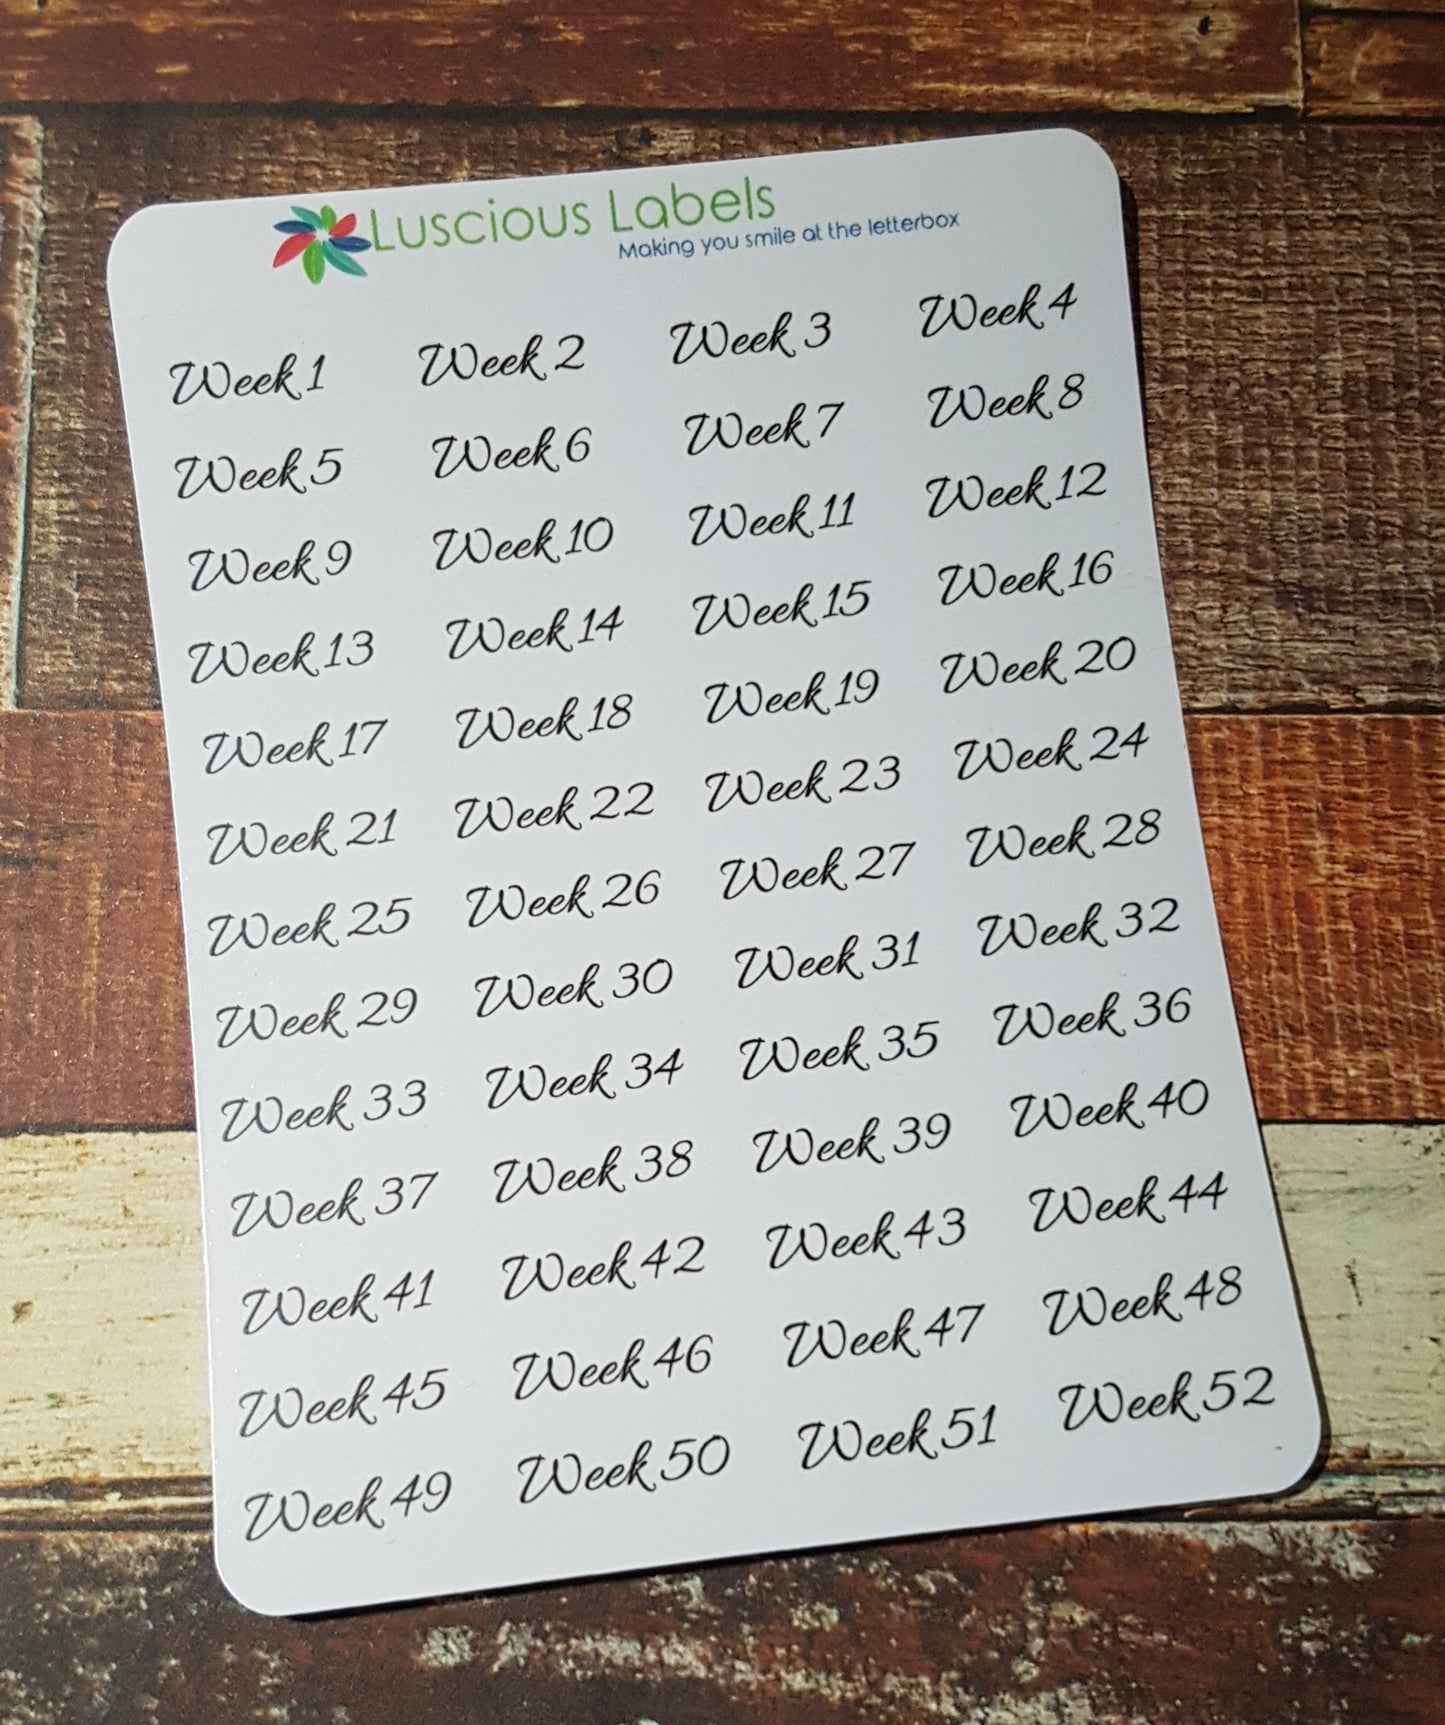 Luscious Labels
Making you smile at the letterbox
Week 1 Week 2 Week 3 Week 4
Week 5 Week 6 Week 7 Week 8
Week 9 Week 10 Week 11 Week 12
Week 13 Week 14 Week 15 Week 16
Week 17 Week 18 Week 19 Week 20
Week 21 Week 22 Week 23 Week 24
Week 25 Week 26 Week 27 Week 28
Week 29 Week 30 Week 31 Week 32
Week 33 Week 34 Week 35 Week 36
Week 37 Week 38 Week 39 Week 40
Week 41 Week 42 Week 43 Week 44
Week 45 Week 46 Week 47 Week 48
Week 49 Week 50 Week 51 Week 52